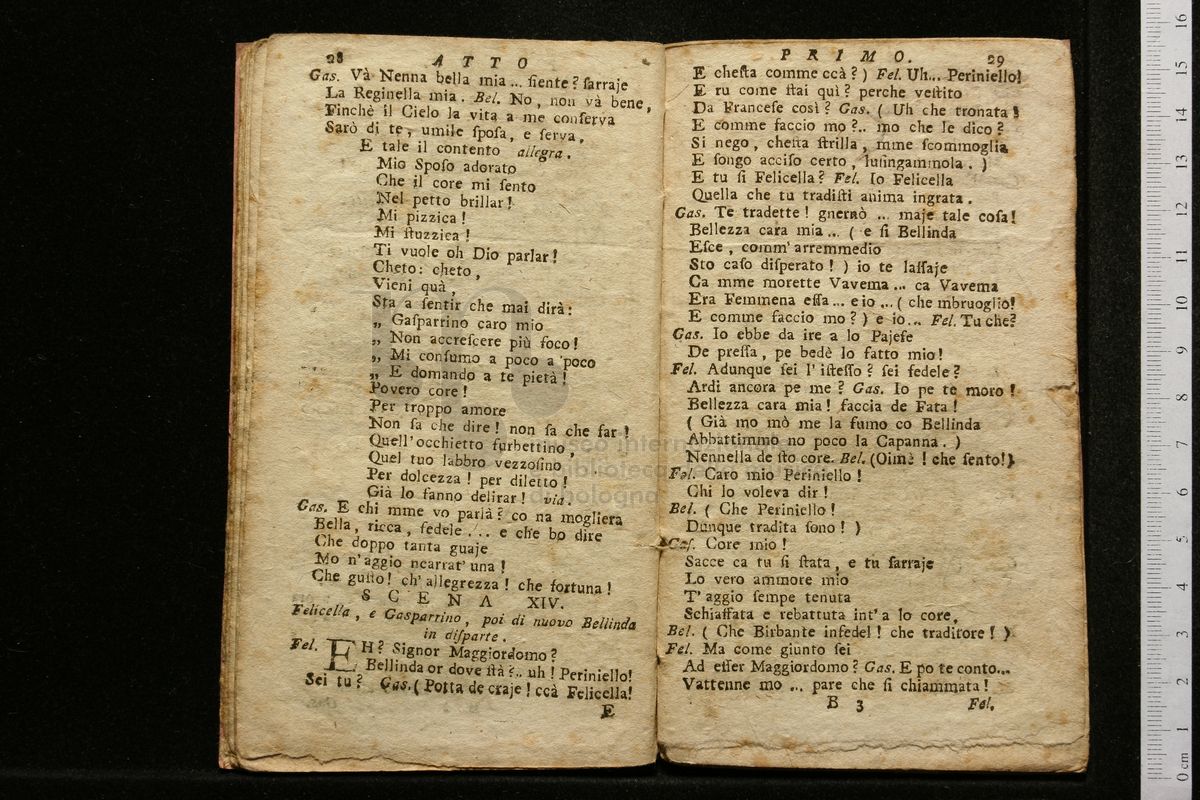 28 ATTO
Gas. Và Nenna bella mia ... siente? sarraje
La Reginella mia. Bel. No, non và bene,
Finchè il Cielo la vita a me conserva
Sarò di te, umile sposa, e serva.
E tale il contento allegra.
Mio Sposo adorato
Che il core mi sento
Nel petto brillar!
Mi pizzica!
Mi stuzzica!
Ti vuole oh Dio parlar!
Cheto: cheto,
Vieni quà,
Sta a sentir che mai dirà:
„ Gasparrino caro mio
„ Non accrescere più foco!
„ Mi consumo a poco a poco
„ E domando a te pietà!
Povero core!
Per troppo amore
Non sa che dire! non sa che far!
Quell'occhietto furbettino,
Quel tuo labbro vezzosino
Per dolcezza! per diletto!
Già lo fanno delirar! via.
Gas. E chi mme vo parlà? co na mogliera
Bella, ricca, fedele ... e che bo dire
Che doppo tanta guaje
Mo n'aggio ncarrat' una!
Che gusto! ch'allegrezza! che fortuna!
SCENA XIV.
Felicella, e Gasparrino, poi di nuovo Bellinda
in disparte.
Fel. EH? Signor Maggiordomo?
Bellinda or dove stà?.. uh! Periniello!
Sei tu? Gas. (Potta de craje! ccà Felicella!
E
PRIMO. 29
E chesta comme ccà?) Fel. Uh... Periniello!
E tu come stai quì? perche vestito
Da Francese così? Gas. (Uh che tronata!
E comme faccio mo?.. mo che le dico?
Si nego, chesta strilla, mme scommoglia
E songo acciso certo, lusingammola.)
E tu si Felicella? Fel. Io Felicella
Quella che tu tradisti anima ingrata.
Gas. Te tradette! gnernò ... maje tale cosa!
Bellezza cara mia ... (e si Bellinda
Esce, comm'arremmedio
Sto caso disperato!) io te lassaje
Ca mme morette Vavema ... ca Vavema
Era Femmena essa ... e io ... (che mbruoglio!
E comme faccio mo?) e io... Fel. Tu che?
Gas. Io ebbe da ire a lo Pajese
De pressa, pe bedè lo fatto mio!
Fel. Adunque sei l'istesso? sei fedele?
Ardi ancora pe me? Gas. Io pe te moro!
Bellezza cara mia! faccia de Fata!
(Già mo mò me la fumo co Bellinda
Abbattimmo no poco la Capanna.)
Nennella de sto core. Bel. (Oimè! che sento!)
Fel. Caro mio Periniello!
Chi lo voleva dir!
Bel. (Che Periniello!
Dunque tradita sono!)
Gas. Core mio!
Sacce ca tu si stata, e tu sarraje
Lo vero ammore mio
T'aggio sempe tenuta
Schiaffata e rebattuta int'a lo core.
Bel. (Che Birbante infedel! che traditore!)
Fel. Ma come giunto sei
Ad esser Maggiordomo? Gas. E po te conto...
Vattenne mo ... pare che si chiammata!
B 3 Fel.